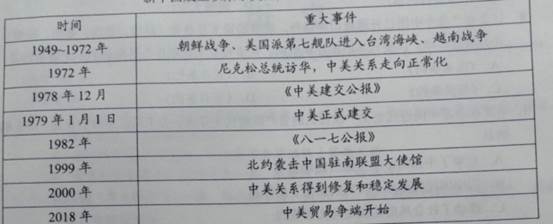 时间 重大事件
1949~1972 年 朝鲜战争、美国派第七舰队进入台湾海峡、越南战争
1972 年 尼克松总统访华，中美关系走向正常化
1978 年 12 月 《中美建交公报》
1979 年 1 月 1 日 中美正式建交
1982 年 《八一七公报》
1999 年 北约袭击中国驻南联盟大使馆
2000 年 中美关系得到修复和稳定发展
2018 年 中美贸易争端开始